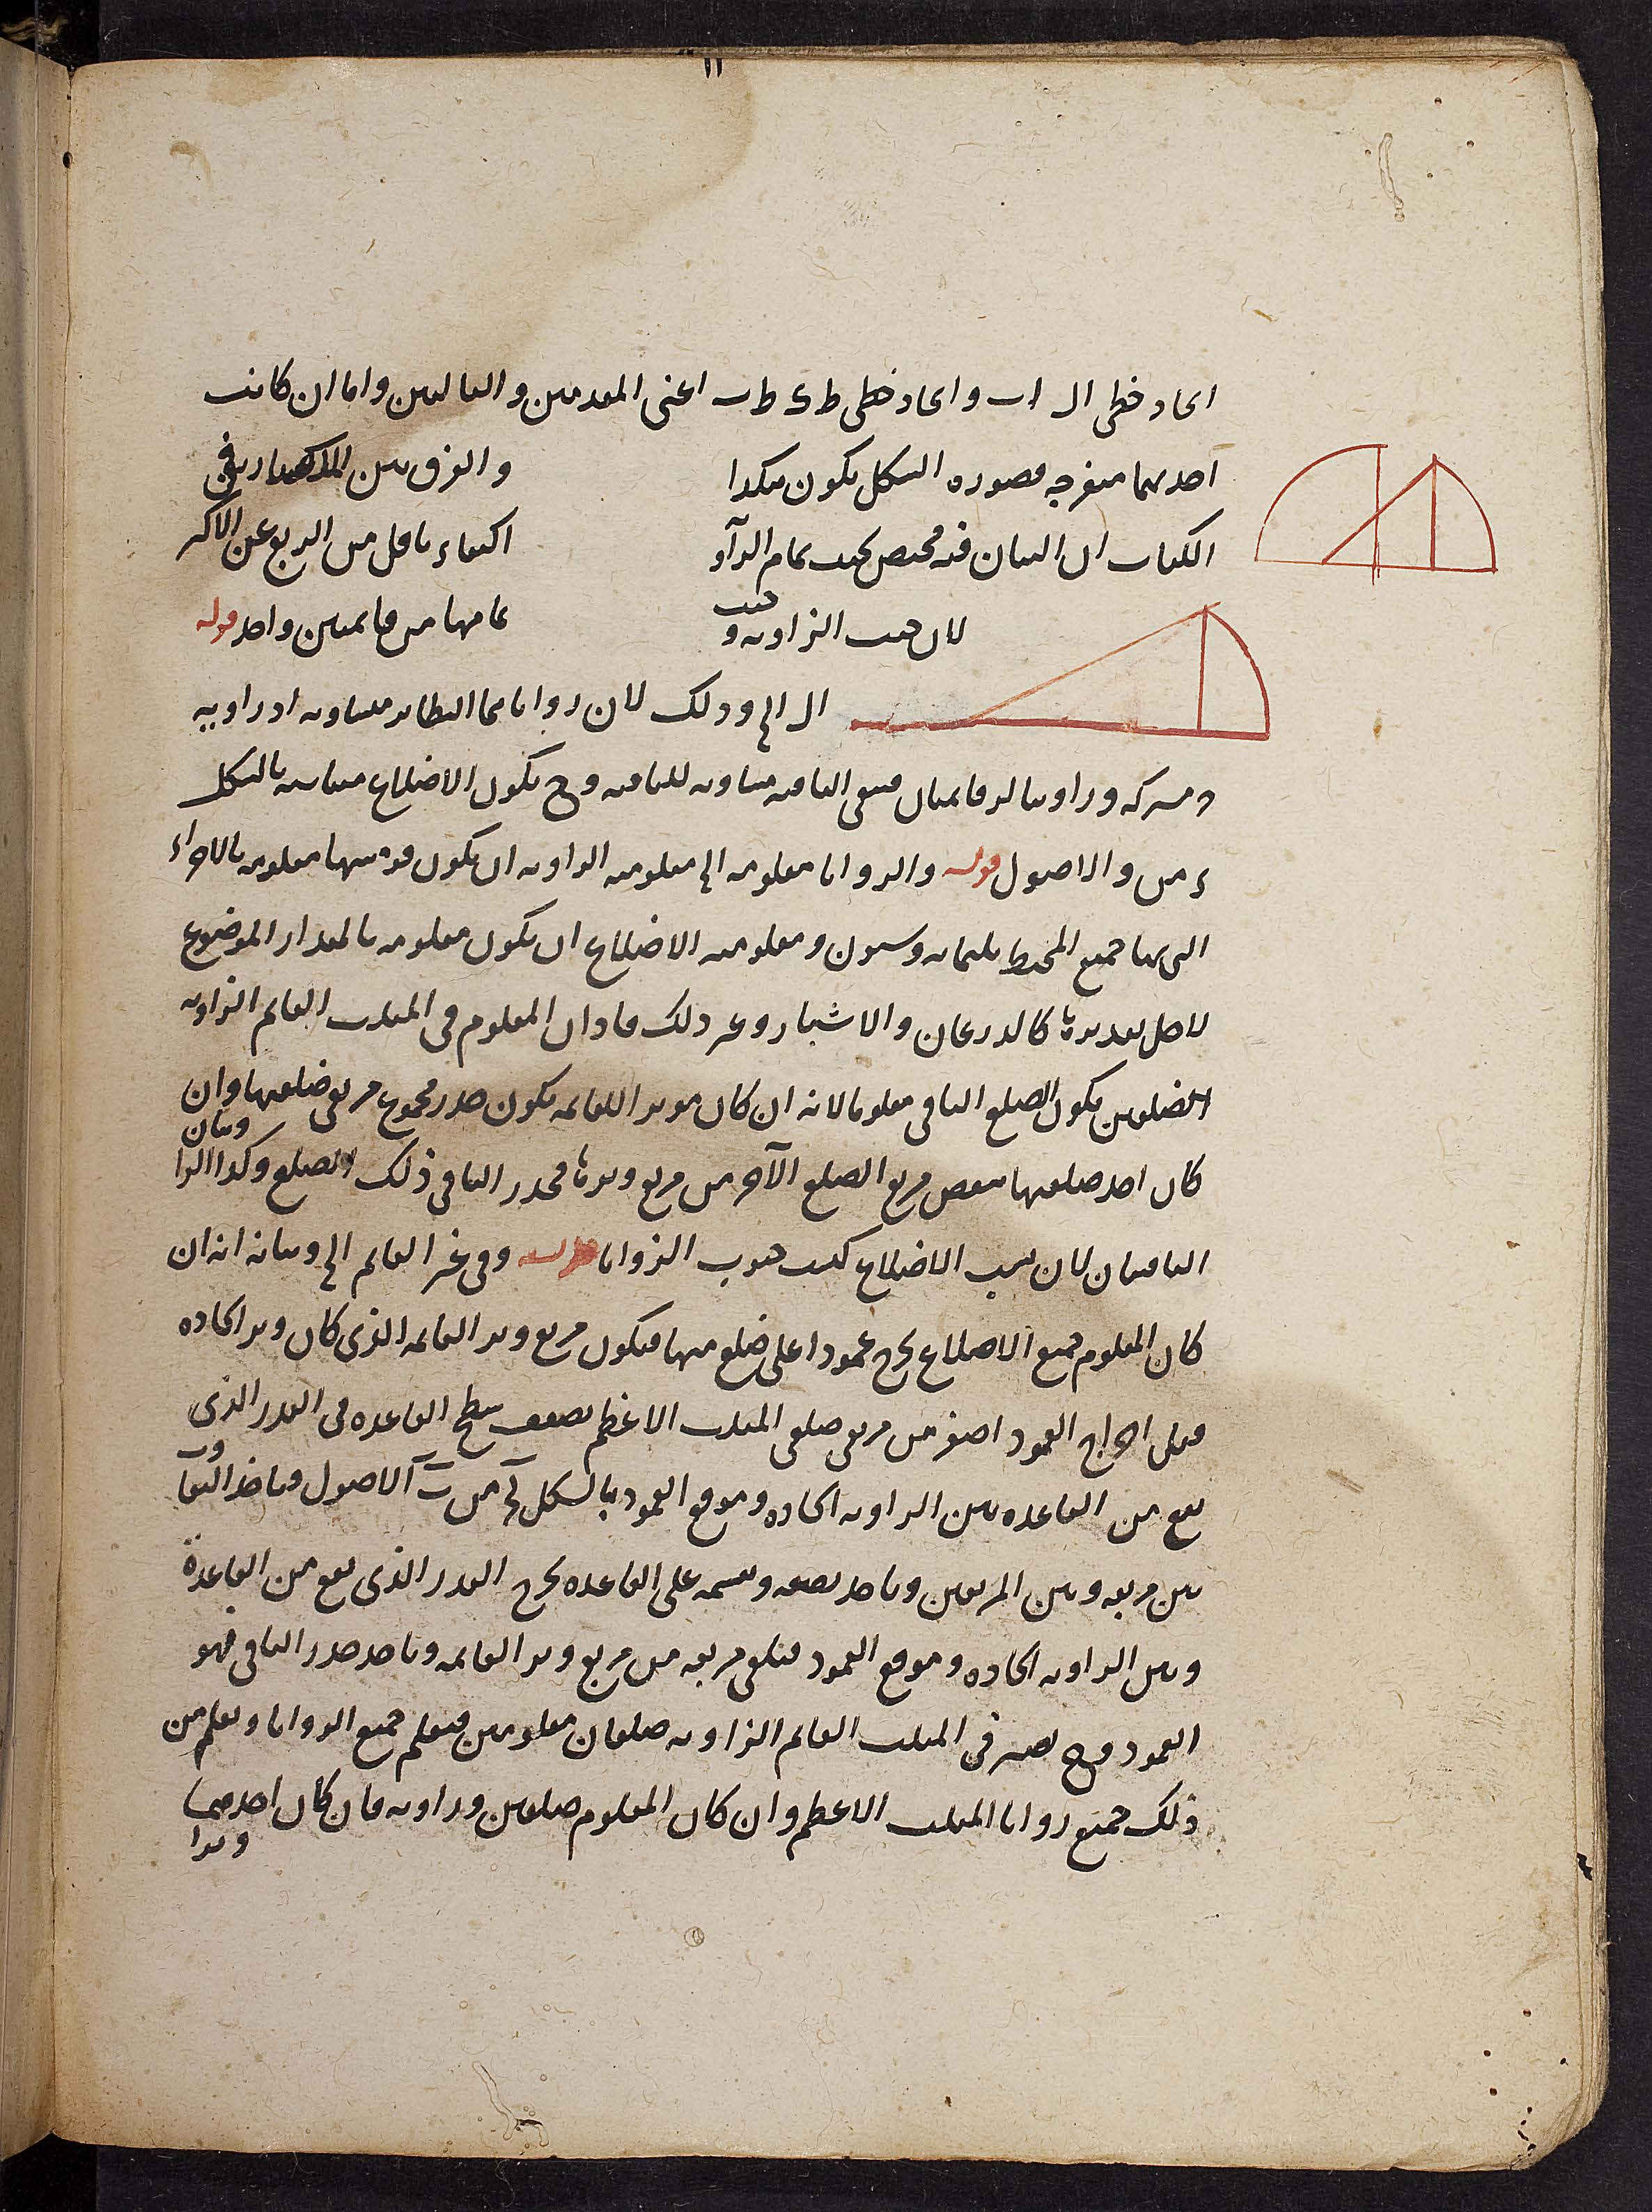 ١١
اتحاد خطى ال اب واتحاد خطى ط ك ط ب اعنى المقدمين والتاليين واما ان كانت
احديهما منفرجه فصوره الشكل يكون هكذا والفرق بين
الكتاب ان البيان فيه مختص بجيب تمام الزاو اكتفاء باقل من الربع عن الاكثر
لان جيب الزاويه وجيب تمامها من قائمتين واحد قوله
ال الى وذلك لان زوايا النظائر متساويه اذ زاويه
مشتركه وزاويتا قائمتان فبقى الباقيه مساويه للباقيه وح يكون الاضلاع متناسبه بالشكل
د من و الاصول قوله والزوايا معلومه الى معلوميه الزاويه ان يكون قوسها معلومه بالاجزاء
التى بها جميع المحيط ثلثمائه وستون ومعلوميه الاضلاع ان يكون معلومه بالمقدار الموضوع
لاجل تقديرها كالذرعان والاشبار وغير ذلك فاذا المعلوم فى المثلث القائم الزاويه
الضلعين يكون الضلع الباقى معلوما لانه ان كان موتر القائمه يكون جذر مجموع مربعى ضلعيها وان
كان احد ضلعيها ينقص مربع الضلع الآخر من مربع وترها فجذر الباقى ذلك الضلع وكذا الزاويتان
الباقيتان لان نسب الاضلاع كنسب جيوب الزوايا قوله وفى غير القائم الى وبيانه انه ان
كان المعلوم جميع الاضلاع يخرج عمودا على ضلع منها فيكون مربع وتر القائمه الذى كان وتر الحاده
قبل اخراج العمود اصغر من مربعى ضلعى المثلث الاعظم بضعف سطح القاعده فى القدر الذى
يقع من القاعده بين الزاويه الحاده وموقع العمود بالشكل من ب الاصول وناخذ التفاوت
بين مربعه وبين المربعين وناخذ نصفه ونقسمه على القاعده يخرج القدر الذى يقع من القاعدة
وبين الزاويه الحاده وموقع العمود فنلقى مربعه من مربع وتر القائمه وناخذ جذر الباقى فهو
العمود وح يصير فى المثلث القائم الزاويه ضلعان معلومين فيعلم جميع الزوايا ويعلم من
ذلك جميع زوايا المثلث الاعظم وان كان المعلوم ضلعين وزاويه فان كان احدهما
وترا